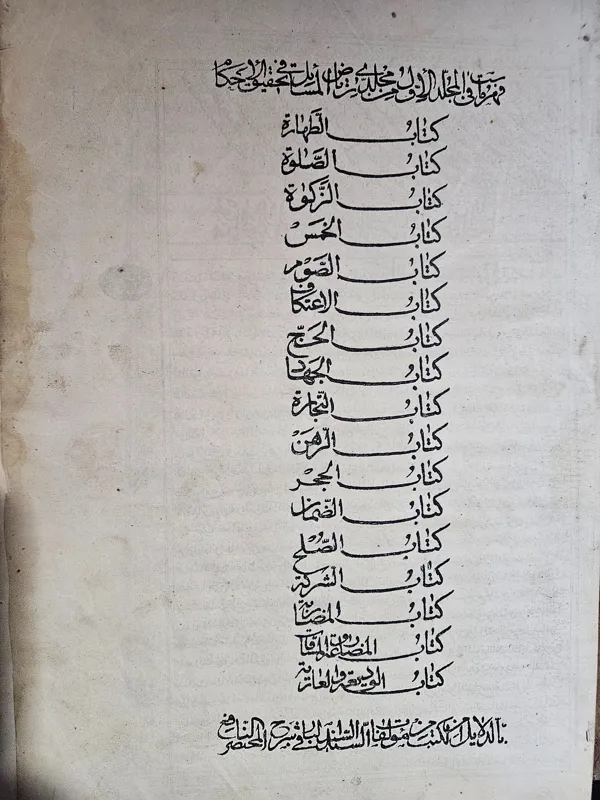 فهرست ما في المجلد الاول من مجلدي رياض المسائل في تحقيق الاحكام
كتاب الطهارة
كتاب الصلوة
كتاب الزكوة
كتاب الخمس
كتاب الصوم
كتاب الاعتكاف
كتاب الحج
كتاب الجهاد
كتاب التجارة
كتاب الرهن
كتاب الحجر
كتاب الضمان
كتاب الصلح
كتاب الشركة
كتاب المضاربة
كتاب والمساقات
كتاب الوديعة والعارية
بالدلايل الكتاب من مؤلفات السيد السند في شرح المختصر النافع